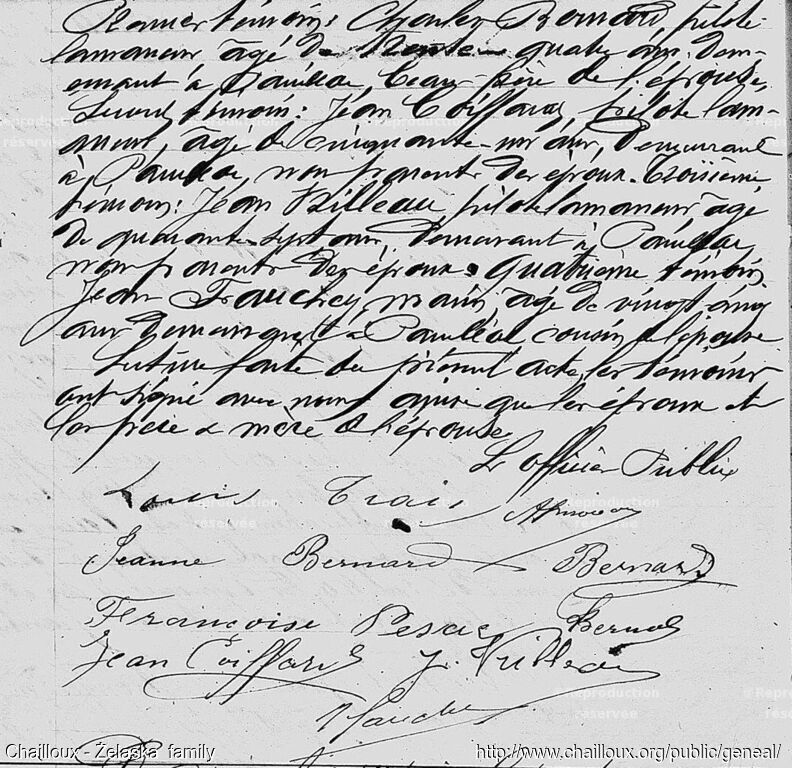 Premier témoin: Charles Bernard, pilote
lamaneur âgé de trente-quatre ans dem-
eurant à Pauillac, beau-frère de l'épouse,
Second témoin: Jean Coiffard, pilote lam-
aneur, âgé de cinquante-un ans, demeurant
à Pauillac, non parent des époux. Troisième
témoin: Jean Killeau, pilote lamaneur, âgé
de quarante-sept ans, demeurant à Pauillac,
non parent des époux. Quatrième témoin,
Jean Fauchey, marin, âgé de vingt cinq
ans demeurant à Pauillac cousin de l'épouse.
Lecture faite du présent acte, les témoins
ont signé avec nous ainsi que les époux et
les père & mère de l'épouse.
L'officier Public
Louis Trais
Jeanne Bernard Bernard
Françoise Pesac Bernard
Jean Coiffard J. Killeau
Fauchey
Chailloux - Želaska family http://www.chailloux.org/public/geneal/